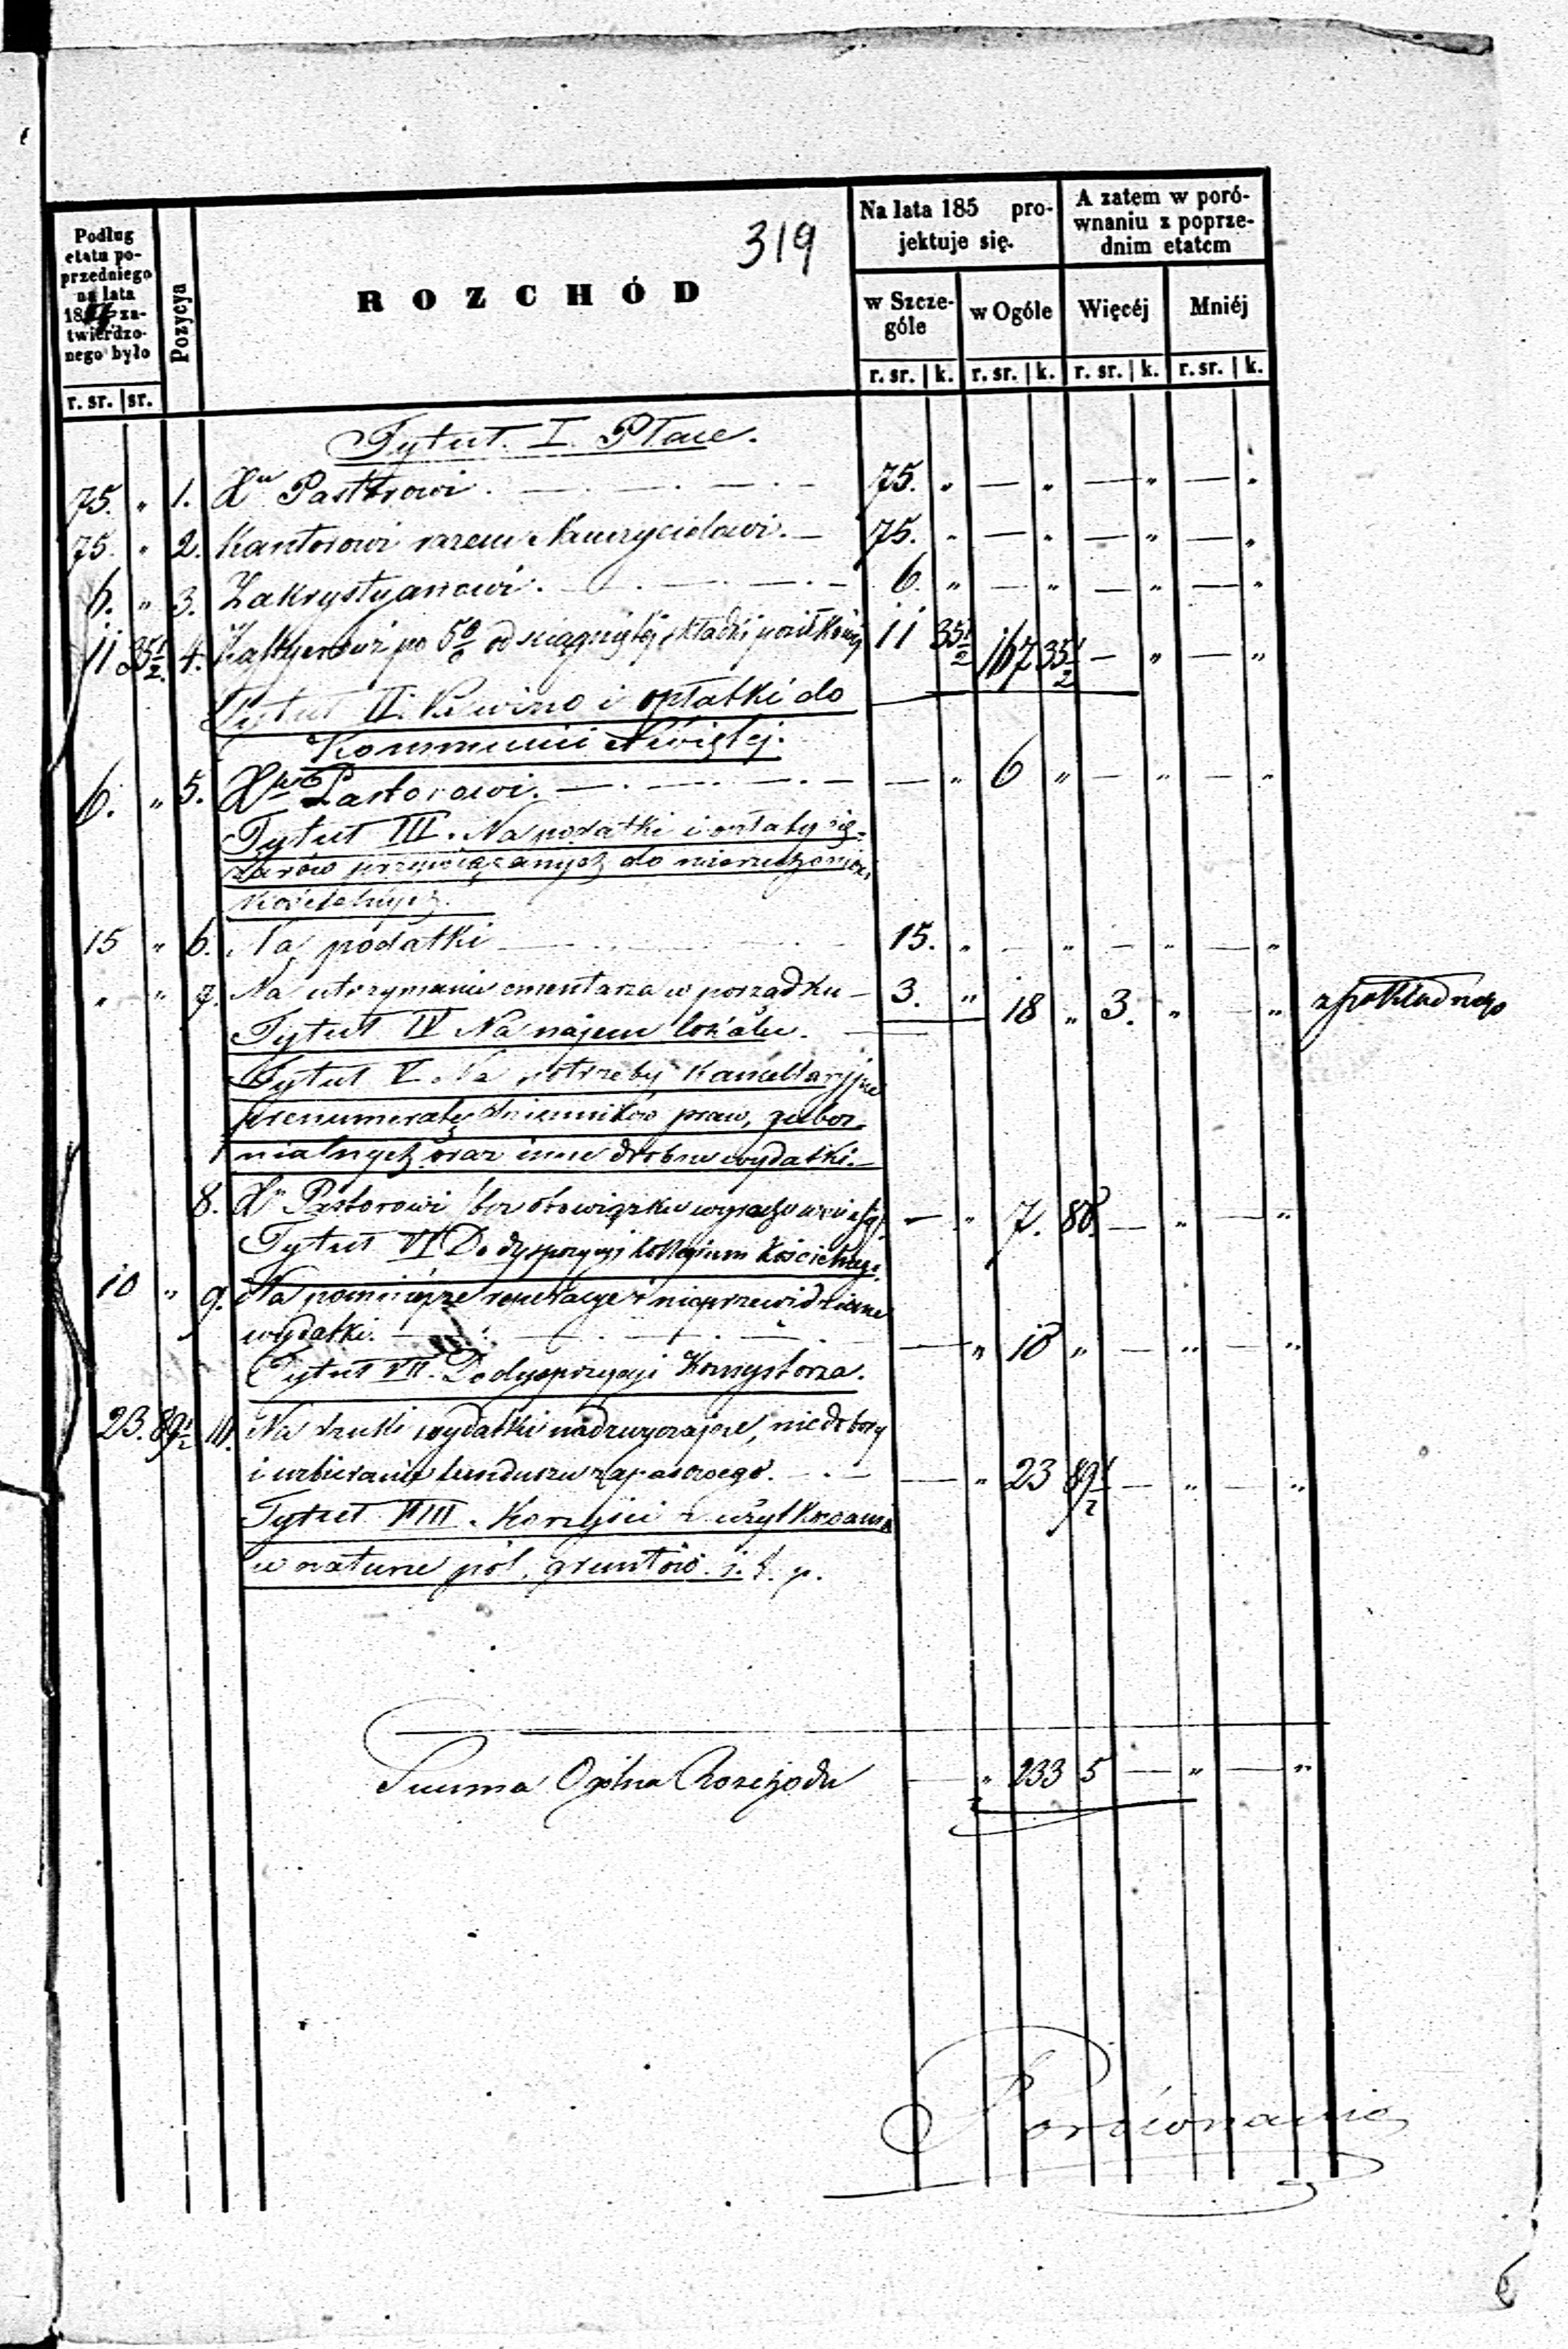 319
Podług etatu poprzedniego na lata 18 zatwierdzonego było
Pozycya
ROZCHÓD
Na lata 185 projektuje się.
A zatem w porównaniu z poprzednim etatem
w Szczególe
w Ogóle
Więcéj
Mniéj
r. sr. | sr.
r. sr. | k. r. sr. | k. r. sr. | k. r. sr. | k.
Tytuł. I. Płace.
75. " 1. Xu Pastorowi. — 75. " — " — " — "
75. " 2. Kantorowi razem Nauczycielowi. — 75. " — " — " — "
6. " 3. Zakrystyanowi. — 6. " — " — " — "
11 35½ 4. Kassyerowi po 5% od ściągniętej składki 11 35½ 167 35½ — " — "
Tytuł II. Na wino i opłatki do
Kommunii Świętej.
6. " 5. Xu Pastorowi. — — " 6 " — " — "
Tytuł III. Na podatki i opłaty cię-
żarów przywiązanych do nieruchomości
kościelnych.
15 " 6. Na podatki — 15. " — " — " — "
" " 7. Na utrzymanie cmentarza w porządku — 3. " 18 " 3. " — "
Tytuł IV Na najem lokalu. —
Tytuł V. Na potrzeby Kancellaryjne
prenumeratę dzienników praw, guber-
nialnych oraz inne drobne wydatki. —
8. Xu Pastorowi bez obowiązku — " 7. 88. — " — "
Tytuł VI Do dyspozycyi Kollegium Kościelnego.
10 " 9. Na pomniejsze reperacye i nieprzewidziane
wydatki. — — " 10 " — " — "
Tytuł VII. Do dyspozycyi Konsystorza.
23. 89½ 10. Na druki wydatki nadzwyczajne, niedobory
i uzbieranie funduszu zapasowego. — — " 23 89½ — " — "
Tytuł VIII. Korzyści z użytkowania
w naturze pól, gruntów. i. t. p.
Summa Ogólna Rozchodu — " 233 5 — " — "
Porównanie